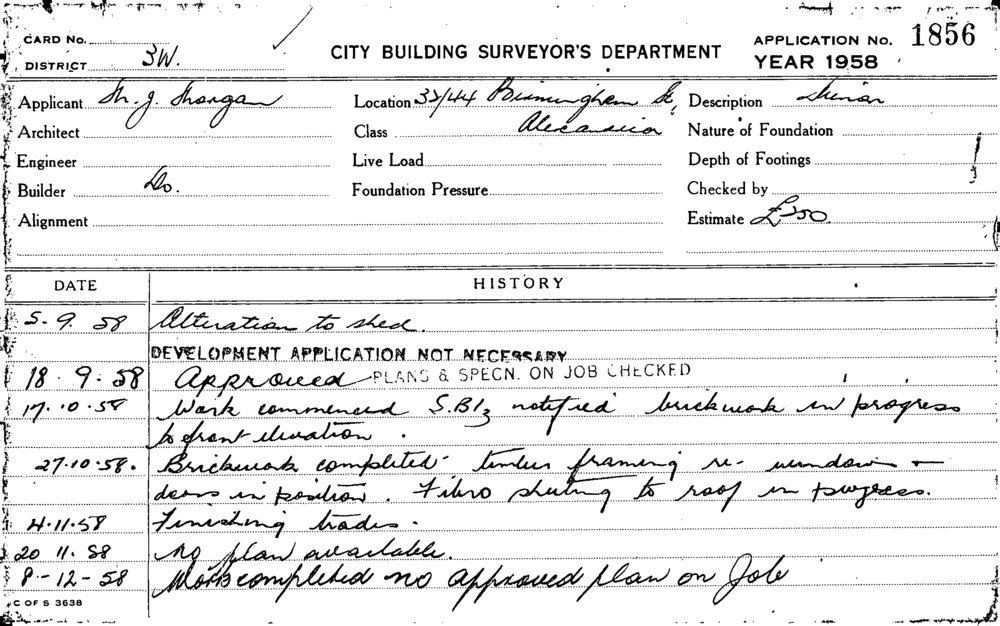 CARD No.
DISTRICT 3W.
CITY BUILDING SURVEYOR'S DEPARTMENT
APPLICATION No. 1856
YEAR 1958
Applicant
Location Birmingham St,
Alexandria
Description Minor
Architect
Class
Nature of Foundation
Engineer
Live Load
Depth of Footings
Builder Do.
Foundation Pressure
Checked by
Alignment
Estimate £250
DATE HISTORY
5. 9. 58 Alteration to shed.
DEVELOPMENT APPLICATION NOT NECESSARY
18. 9. 58 Approved PLANS & SPECN. ON JOB CHECKED
17. 10. 58 Work commenced notified brickwork in progress
to front elevation.
27.10.58. Brickwork completed timber framing re- window
doors in position. Fibro sheeting to roof in progress.
4.11.58 Finishing trades.
20 11. 58 No plan available.
8-12-58 Work completed no approved plan on Job
C OF S 3638